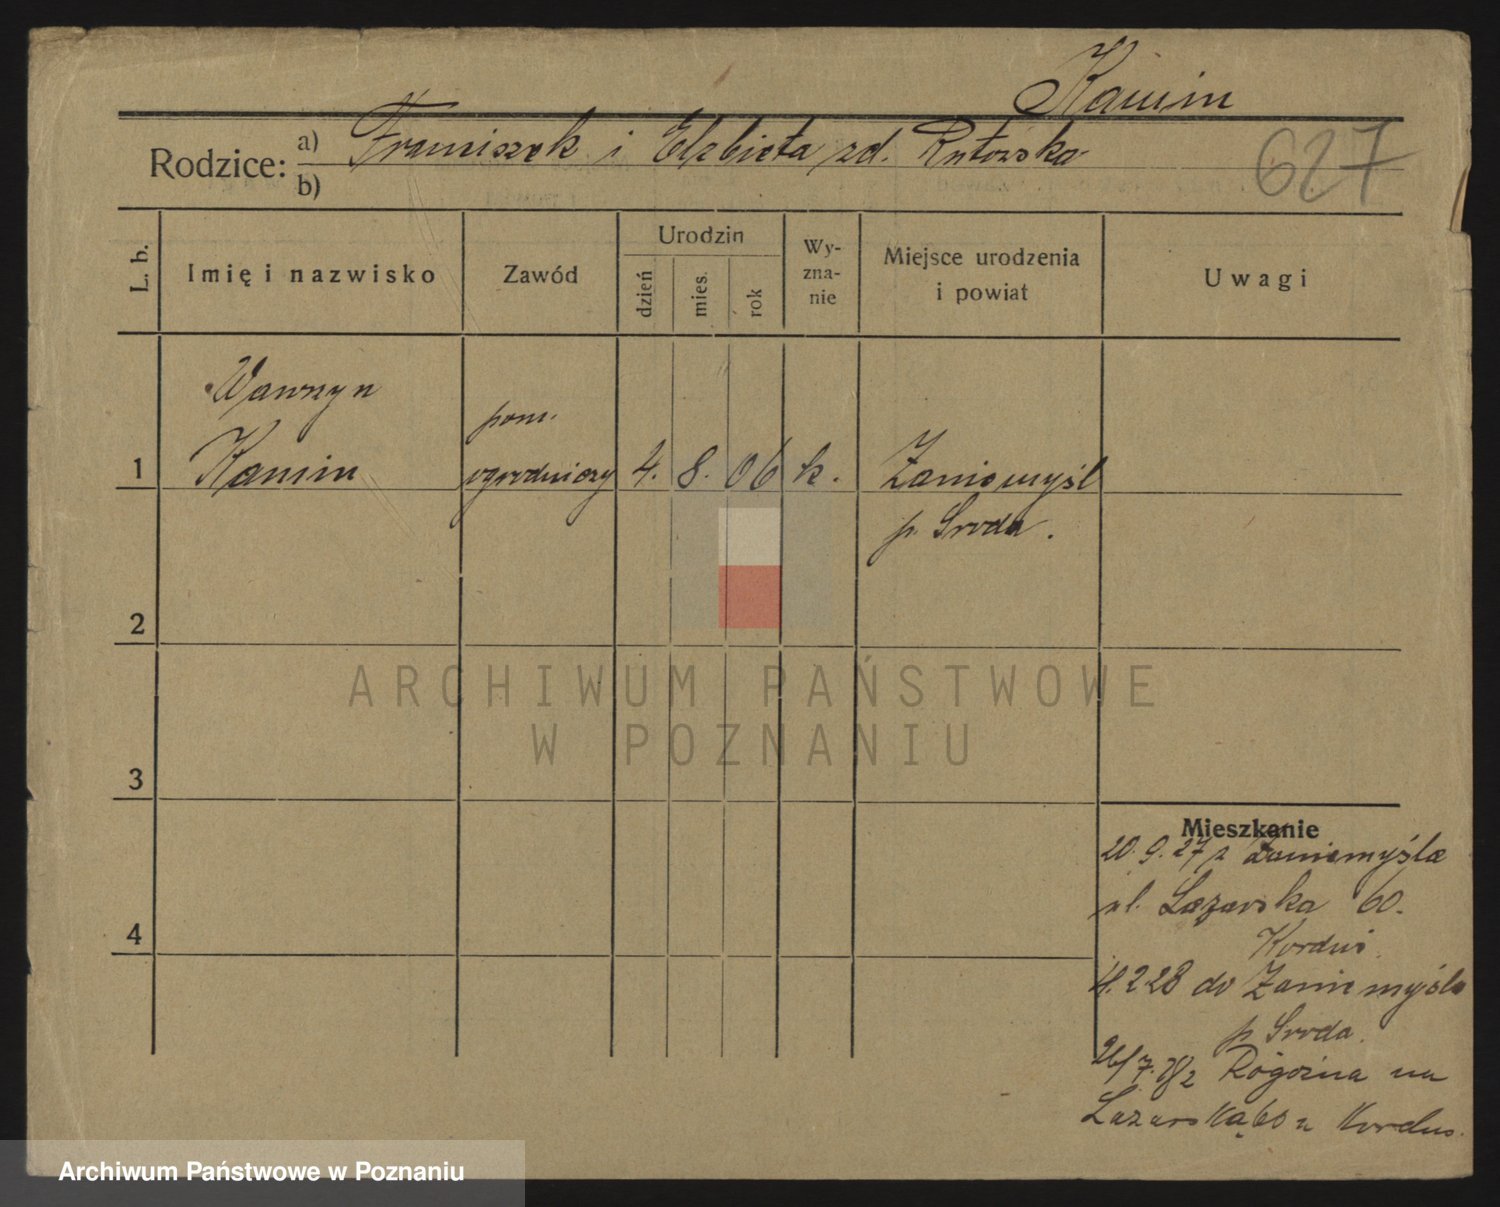 Kamin
Rodzice: a) Franciszek i Elżbieta zd. Rutowska
b)
627
L. b.
Imię i nazwisko
Zawód
Urodzin
dzień
mies.
rok
Wy-
zna-
nie
Miejsce urodzenia
i powiat
Uwagi
Wawrzyn
pom.
1 Kamin ogrodniczy 4. 8. 06 k. Zaniemyśl
p. Sroda.
2
3
4
ARCHIWUM PAŃSTWOWE
W POZNANIU
Mieszkanie
20.9.27 z Zaniemyśla
ul. Łazarska 60.
Korduś.
4.2 28 do Zaniemyśla
p. Sroda.
26/7. z Rogoźna na
Łazarską 60 u Kordus.
Archiwum Państwowe w Poznaniu